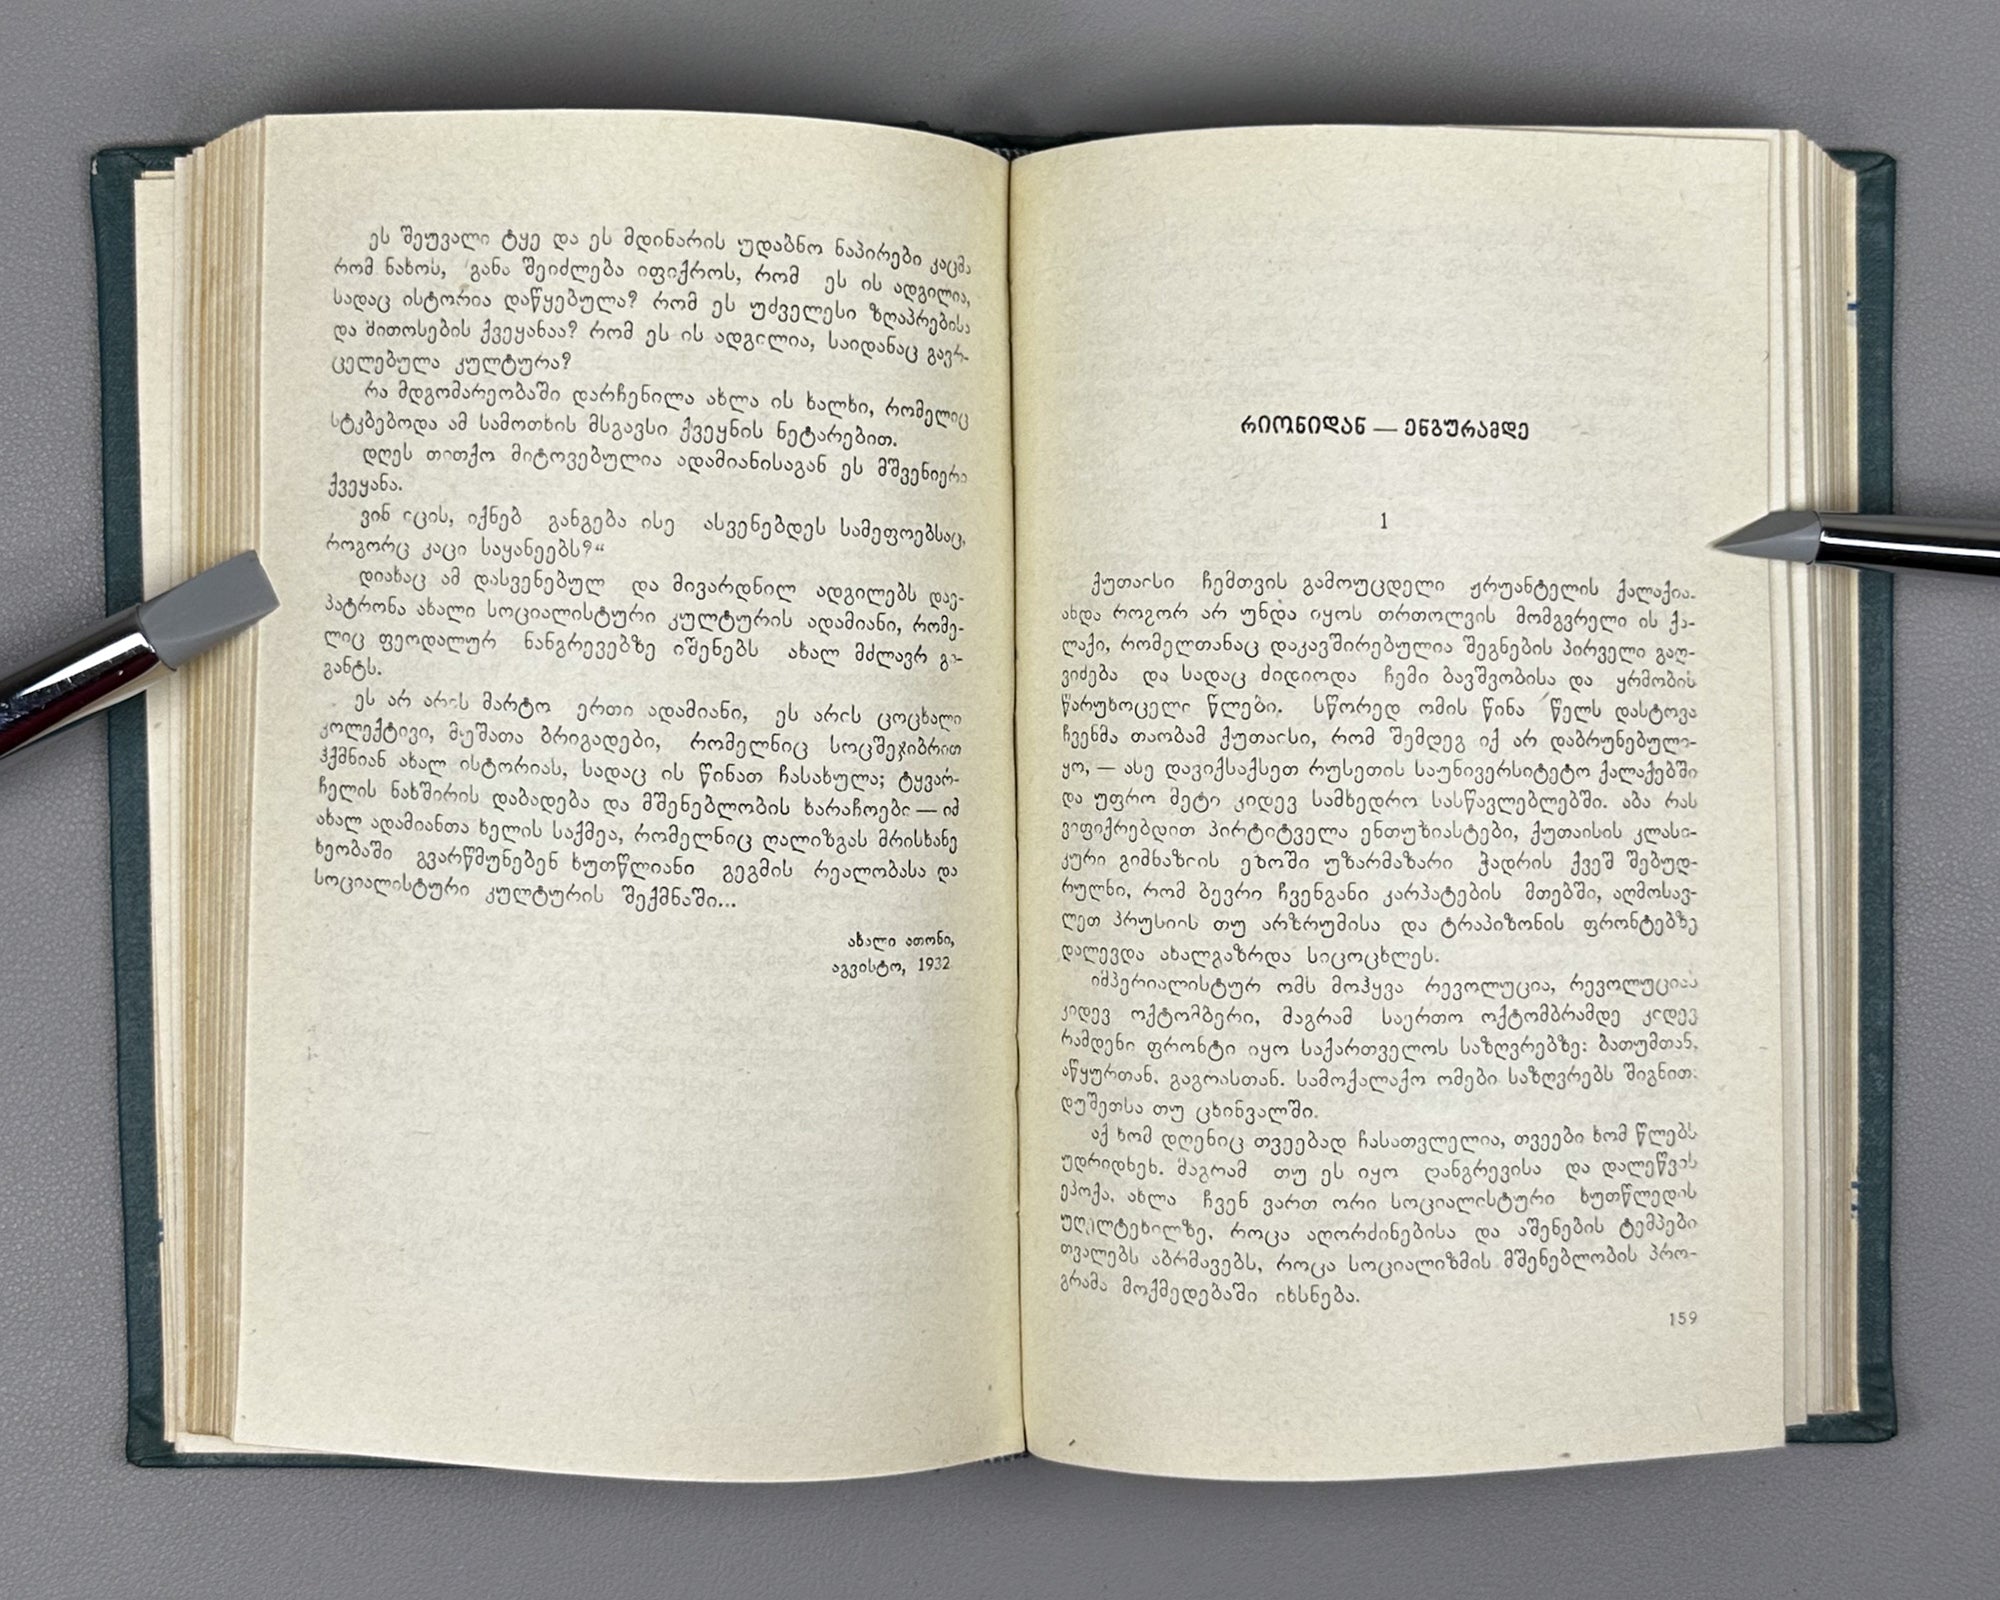 ეს შეუვალი ტყე და ეს მდინარის უდაბნო ნაპირები კაცმა
რომ ნახოს, განა შეიძლება იფიქროს, რომ ეს ის ადგილია,
სადაც ისტორია დაწყებულა? რომ ეს უძველესი ზღაპრებისა
და მითოსების ქვეყანაა? რომ ეს ის ადგილია, საიდანაც გავრ-
ცელებულა კულტურა?
რა მდგომარეობაში დარჩენილა ახლა ის ხალხი, რომელიც
სტკბებოდა ამ სამოთხის მსგავსი ქვეყნის ნეტარებით.
დღეს თითქო მიტოვებულია ადამიანისაგან ეს მშვენიერი
ქვეყანა.
ვინ იცის, იქნებ განგება ისე ასვენებდეს სამეფოებსაც,
როგორც კაცი საყანეებს?“
დიახაც ამ დასვენებულ და მივარდნილ ადგილებს დაე-
პატრონა ახალი სოციალისტური კულტურის ადამიანი, რომე-
ლიც ფეოდალურ ნანგრევებზე იშენებს ახალ მძლავრ გი-
განტს.
ეს არ არის მარტო ერთი ადამიანი, ეს არის ცოცხალი
კოლექტივი, მუშათა ბრიგადები, რომელნიც სოცშეჯიბრით
ჰქმნიან ახალ ისტორიას, სადაც ის წინათ ჩასახულა; ტყვარ-
ჩელის ნახშირის დაბადება და მშენებლობის ხარაჩოები — იმ
ახალ ადამიანთა ხელის საქმეა, რომელნიც ღალიზგას მრისხანე
ხეობაში გვარწმუნებენ ხუთწლიანი გეგმის რეალობასა და
სოციალისტური კულტურის შექმნაში...
ახალი ათონი,
აგვისტო, 1932
რიონიდან — ენგურამდე
1
ქუთაისი ჩემთვის გამოუცდელი ჟრუანტელის ქალაქია.
ახდა როგორ არ უნდა იყოს თრთოლვის მომგვრელი ის ქა-
ლაქი, რომელთანაც დაკავშირებულია შეგნების პირველი გაღ-
ვიძება და სადაც ძიდიოდა ჩემი ბავშვობისა და ყრმობის
წარუხოცელი წლები. სწორედ ომის წინა წელს დასტოვა
ჩვენმა თაობამ ქუთაისი, რომ შემდეგ იქ არ დაბრუნებული-
ყო, — ასე დავიქსაქსეთ რუსეთის საუნივერსიტეტო ქალაქებში
და უფრო მეტი კიდევ სამხედრო სასწავლებლებში. აბა რას
ვიფიქრებდით პირტიტველა ენთუზიასტები, ქუთაისის კლასი-
კური გიმნაზიის ეზოში უზარმაზარი ჭადრის ქვეშ შებუდ-
რულნი, რომ ბევრი ჩვენგანი კარპატების მთებში, აღმოსავ-
ლეთ პრუსიის თუ არზრუმისა და ტრაპიზონის ფრონტებზე
დალევდა ახალგაზრდა სიცოცხლეს.
იმპერიალისტურ ომს მოჰყვა რევოლუცია, რევოლუციას
კიდევ ოქტომბერი, მაგრამ საერთო ოქტომბრამდე კიდევ
რამდენი ფრონტი იყო საქართველოს საზღვრებზე: ბათუმთან,
აწყურთან. გაგრასთან. სამოქალაქო ომები საზღვრებს შიგნით:
დუშეთსა თუ ცხინვალში.
აქ ხომ დღენიც თვეებად ჩასათვლელია, თვეები ხომ წლებს
უდრიდნენ. მაგრამ თუ ეს იყო დანგრევისა და დალეწვის
ეპოქა, ახლა ჩვენ ვართ ორი სოციალისტური ხუთწლედის
უღელტეხილზე, როცა აღორძინებისა და აშენების ტემპები
თვალებს აბრმავებს, როცა სოციალიზმის მშენებლობის პრო-
გრამა მოქმედებაში იხსნება.
159